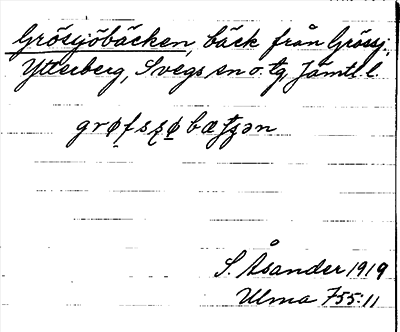 Grösjöbäcken, bäck från Grössj.
Ytterberg, Svegs sn o. tg Jämtl. l.
S. Åsander 1919
Ulma 755:11